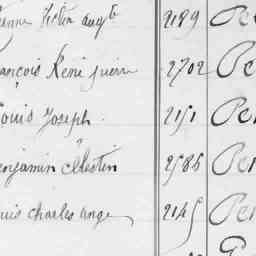 Victor aug^te 2189 Pe
ançois René pierre 2702 Pe
ouis Joseph. 2151 Per
enjamin Célestin 2586 Per
uis charles ange 2145 Per